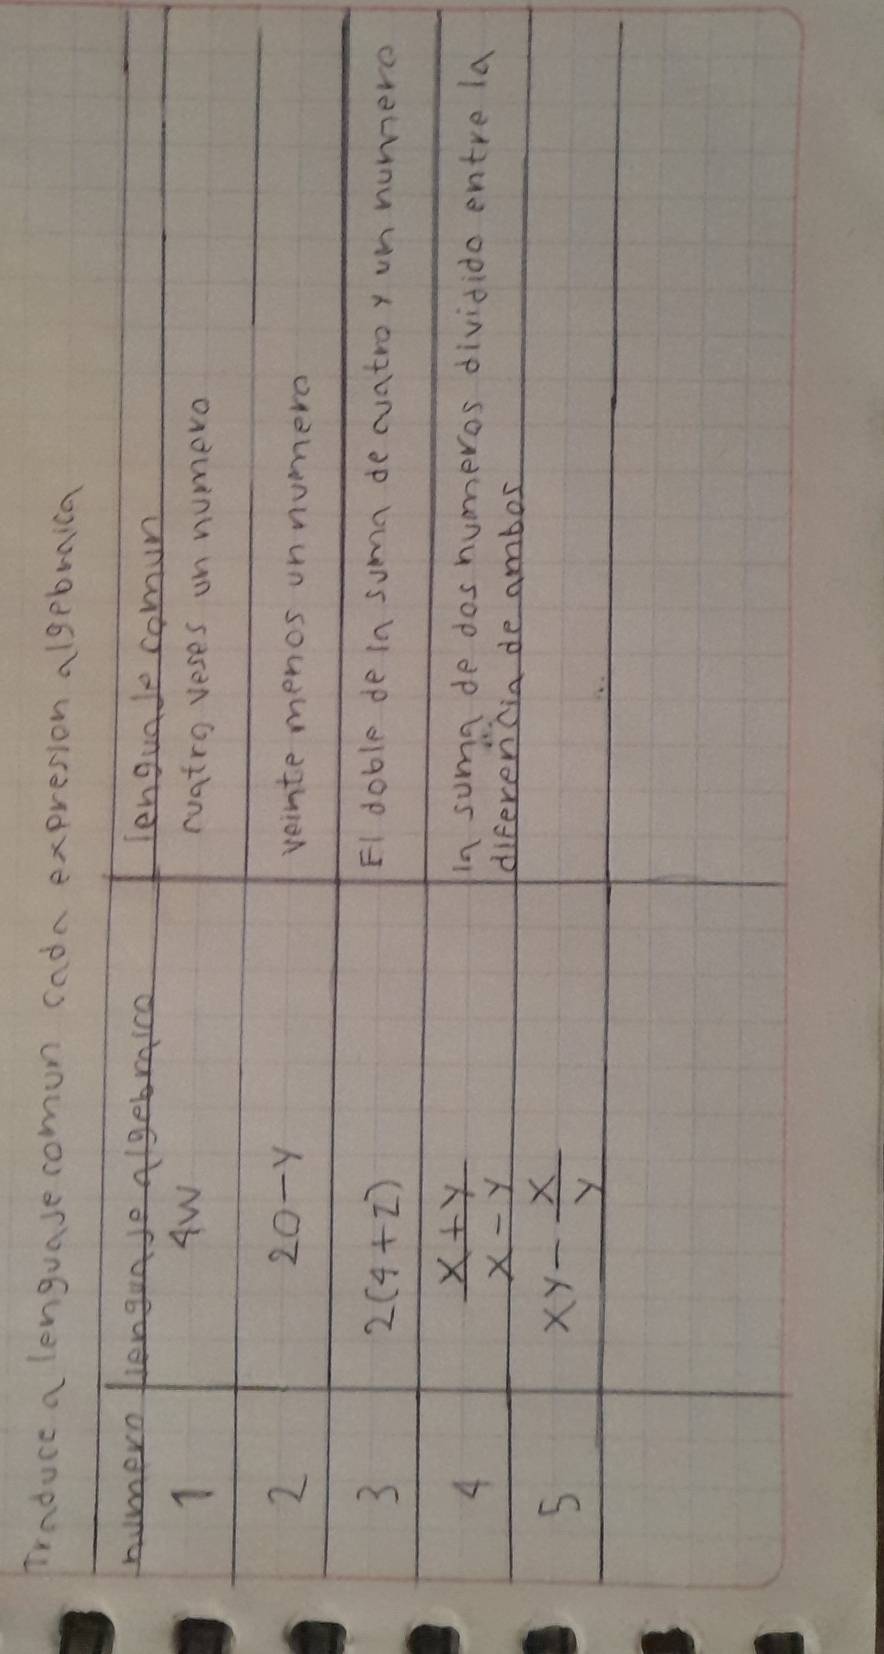 Traduce a lenguaje comun cada expresion algebraica
numero lenguaje algebraico lenguaje comun
1 4w cuatro veses un numero
2 20-y veinte menos un numero
3 2(4+z) El doble de la suma de cuatro y un numero
4 x+y/x-y la suma de dos numeros dividido entre la
diferencia de ambos
5 xy-x/y